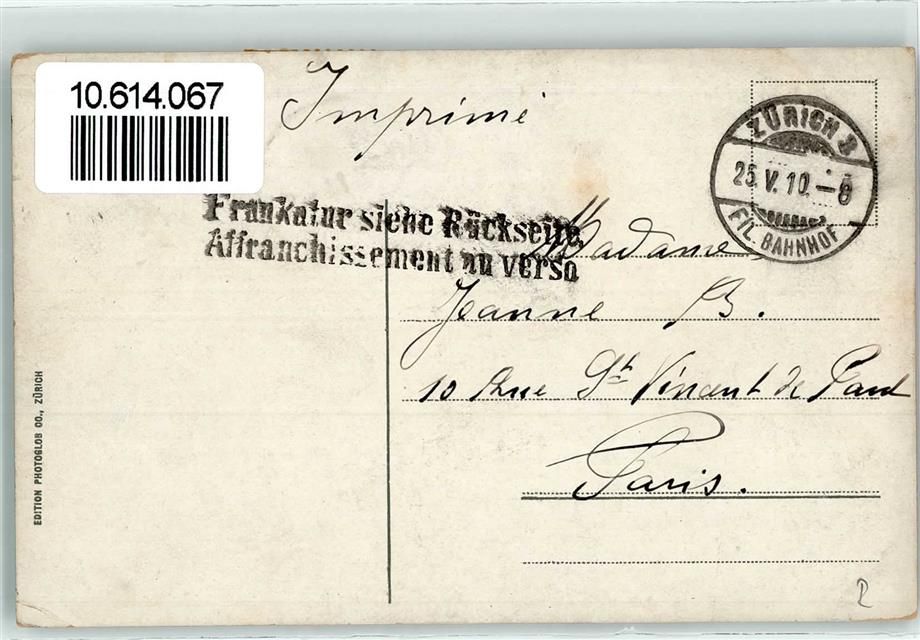 10.614.067
Imprimé
ZÜRICH 3
25.V.10.–8
FIL. BAHNHOF
Frankatur siehe Rückseite.
Affranchissement au verso
Madame
Jeanne B.
10 Rue St Vincent de Paul
Paris.
EDITION PHOTOGLOB CO., ZÜRICH